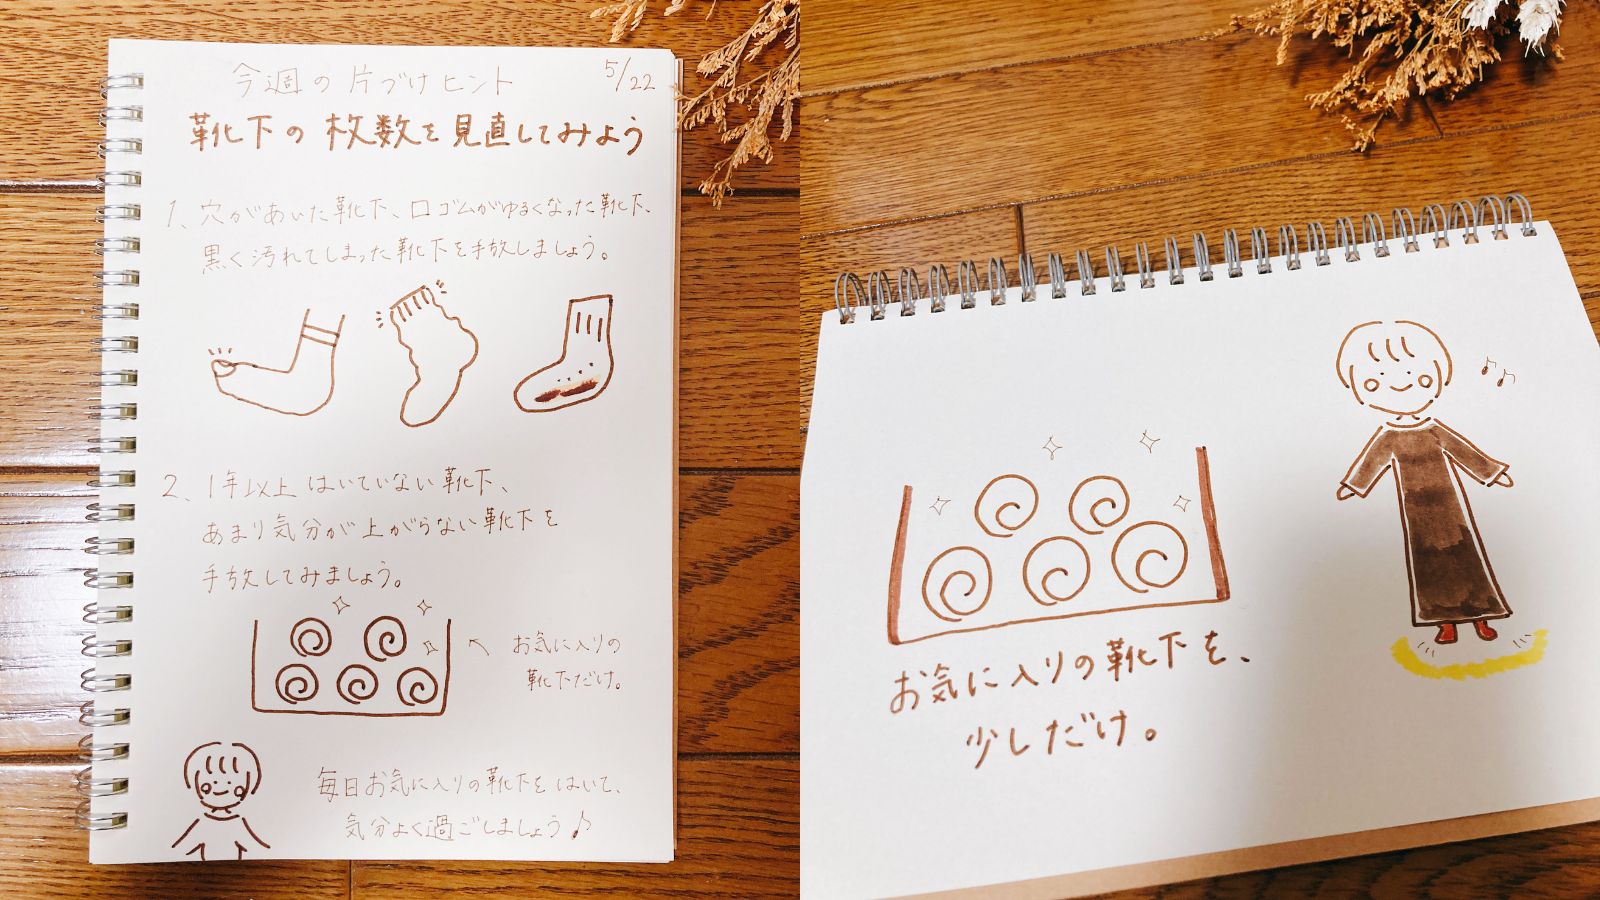 今週の片づけヒント 5/22
靴下の枚数を見直してみよう
1、穴があいた靴下、口ゴムがゆるくなった靴下、
黒く汚れてしまった靴下を手放しましょう。
2、1年以上はいていない靴下、
あまり気分が上がらない靴下を
手放してみましょう。
お気に入りの
靴下だけ。
毎日お気に入りの靴下をはいて、
気分よく過ごしましょう♪
お気に入りの靴下を、
少しだけ。